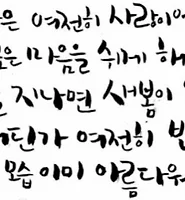 은 여전히 사랑이
은 마음을 쉬게 해
지나면 새봄이
가 여전히
모습 이미 아름다워